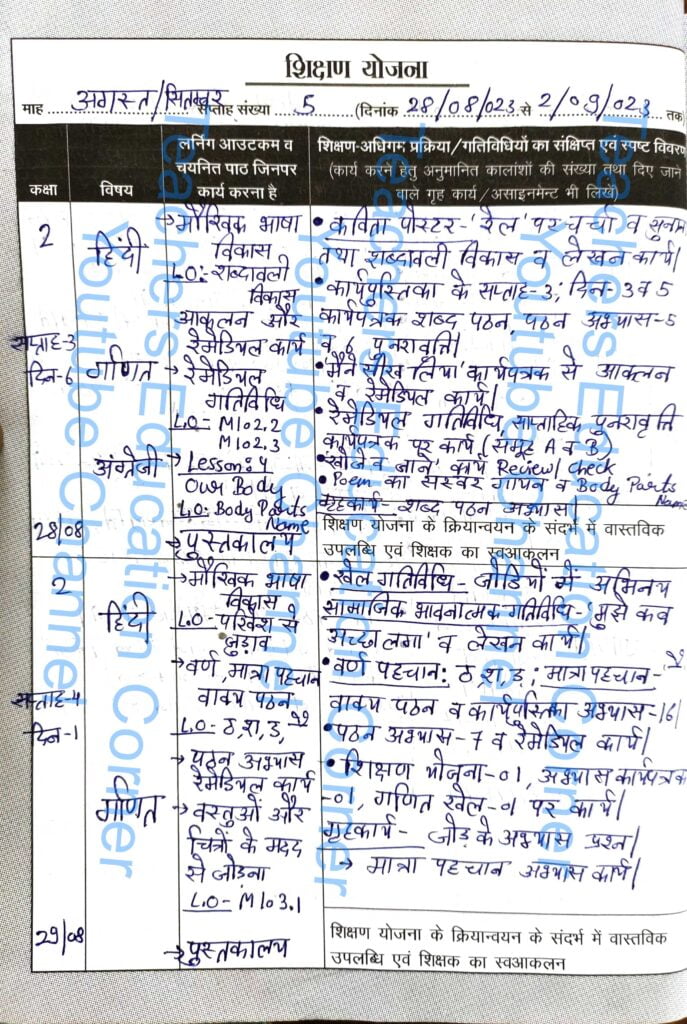 शिक्षण योजना
माह अगस्त/सितम्बर सप्ताह संख्या 5 (दिनांक 28/08/023 से 2/09/023 तक)
कक्षा
विषय
लर्निंग आउटकम व
चयनित पाठ जिनपर
कार्य करना है
शिक्षण-अधिगम प्रक्रिया/गतिविधियों का संक्षिप्त एवं स्पष्ट विवरण
(कार्य करने हेतु अनुमानित कालांशों की संख्या तथा दिए जाने
वाले गृह कार्य/असाइनमेंट भी लिखें)
2
सप्ताह-3
दिन-6
28/08
हिंदी
गणित
अंग्रेजी
→ मौखिक भाषा
विकास
L.O:- शब्दावली
विकास
आकलन और
रेमेडियल कार्य
→ रेमेडियल
गतिविधि
L.O - M102.2
M102.3
→ Lesson: 4
Our Body
L.O:- Body Parts
Name
→ पुस्तकालय
• कविता पोस्टर - 'रेल' पर चर्चा व
तथा शब्दावली विकास व लेखन कार्य।
• कार्यपुस्तिका के सप्ताह-3, दिन-3 व 5
कार्यपत्रक शब्द पठन, पठन अभ्यास-5
व 6 पुनरावृत्ति।
• 'मैंने सीख लिया' कार्यपत्रक से आकलन
व रेमेडियल कार्य।
• रेमेडियल गतिविधि, साप्ताहिक पुनरावृत्ति
कार्यपत्रक पर कार्य (समूह A व B)
• खोजें व जानें कार्य Review/Check
• Poem का सस्वर गायन व Body Parts
Name
गृहकार्य - शब्द पठन अभ्यास।
शिक्षण योजना के क्रियान्वयन के संदर्भ में वास्तविक
उपलब्धि एवं शिक्षक का स्वआकलन
2
सप्ताह-4
दिन-1
29/08
हिंदी
गणित
→ मौखिक भाषा
विकास
L.O - परिवेश से
जुड़ाव
→ वर्ण, मात्रा पहचान
वाक्य पठन
L.O - ठ, श, ड,
→ पठन अभ्यास
रेमेडियल कार्य
→ वस्तुओं और
चित्रों के मदद
से जोड़ना
L.O - M103.1
→ पुस्तकालय
• खेल गतिविधि - जोड़ियों में अभिनय
सामाजिक भावनात्मक गतिविधि - 'मुझे कब
अच्छा लगा' व लेखन कार्य।
• वर्ण पहचान: ठ, श, ड; मात्रा पहचान -
वाक्य पठन व कार्यपुस्तिका अभ्यास-16।
• पठन अभ्यास - 7 व रेमेडियल कार्य।
• शिक्षण योजना-01, अभ्यास कार्यपत्रक
-01, गणित खेल-01 पर कार्य।
गृहकार्य - जोड़ के अभ्यास प्रश्न।
→ मात्रा पहचान अभ्यास कार्य।
शिक्षण योजना के क्रियान्वयन के संदर्भ में वास्तविक
उपलब्धि एवं शिक्षक का स्वआकलन
Teachers Education Corner
Youtube Channel
Teachers Education Corner
Youtube Channel
Teachers Education Corner